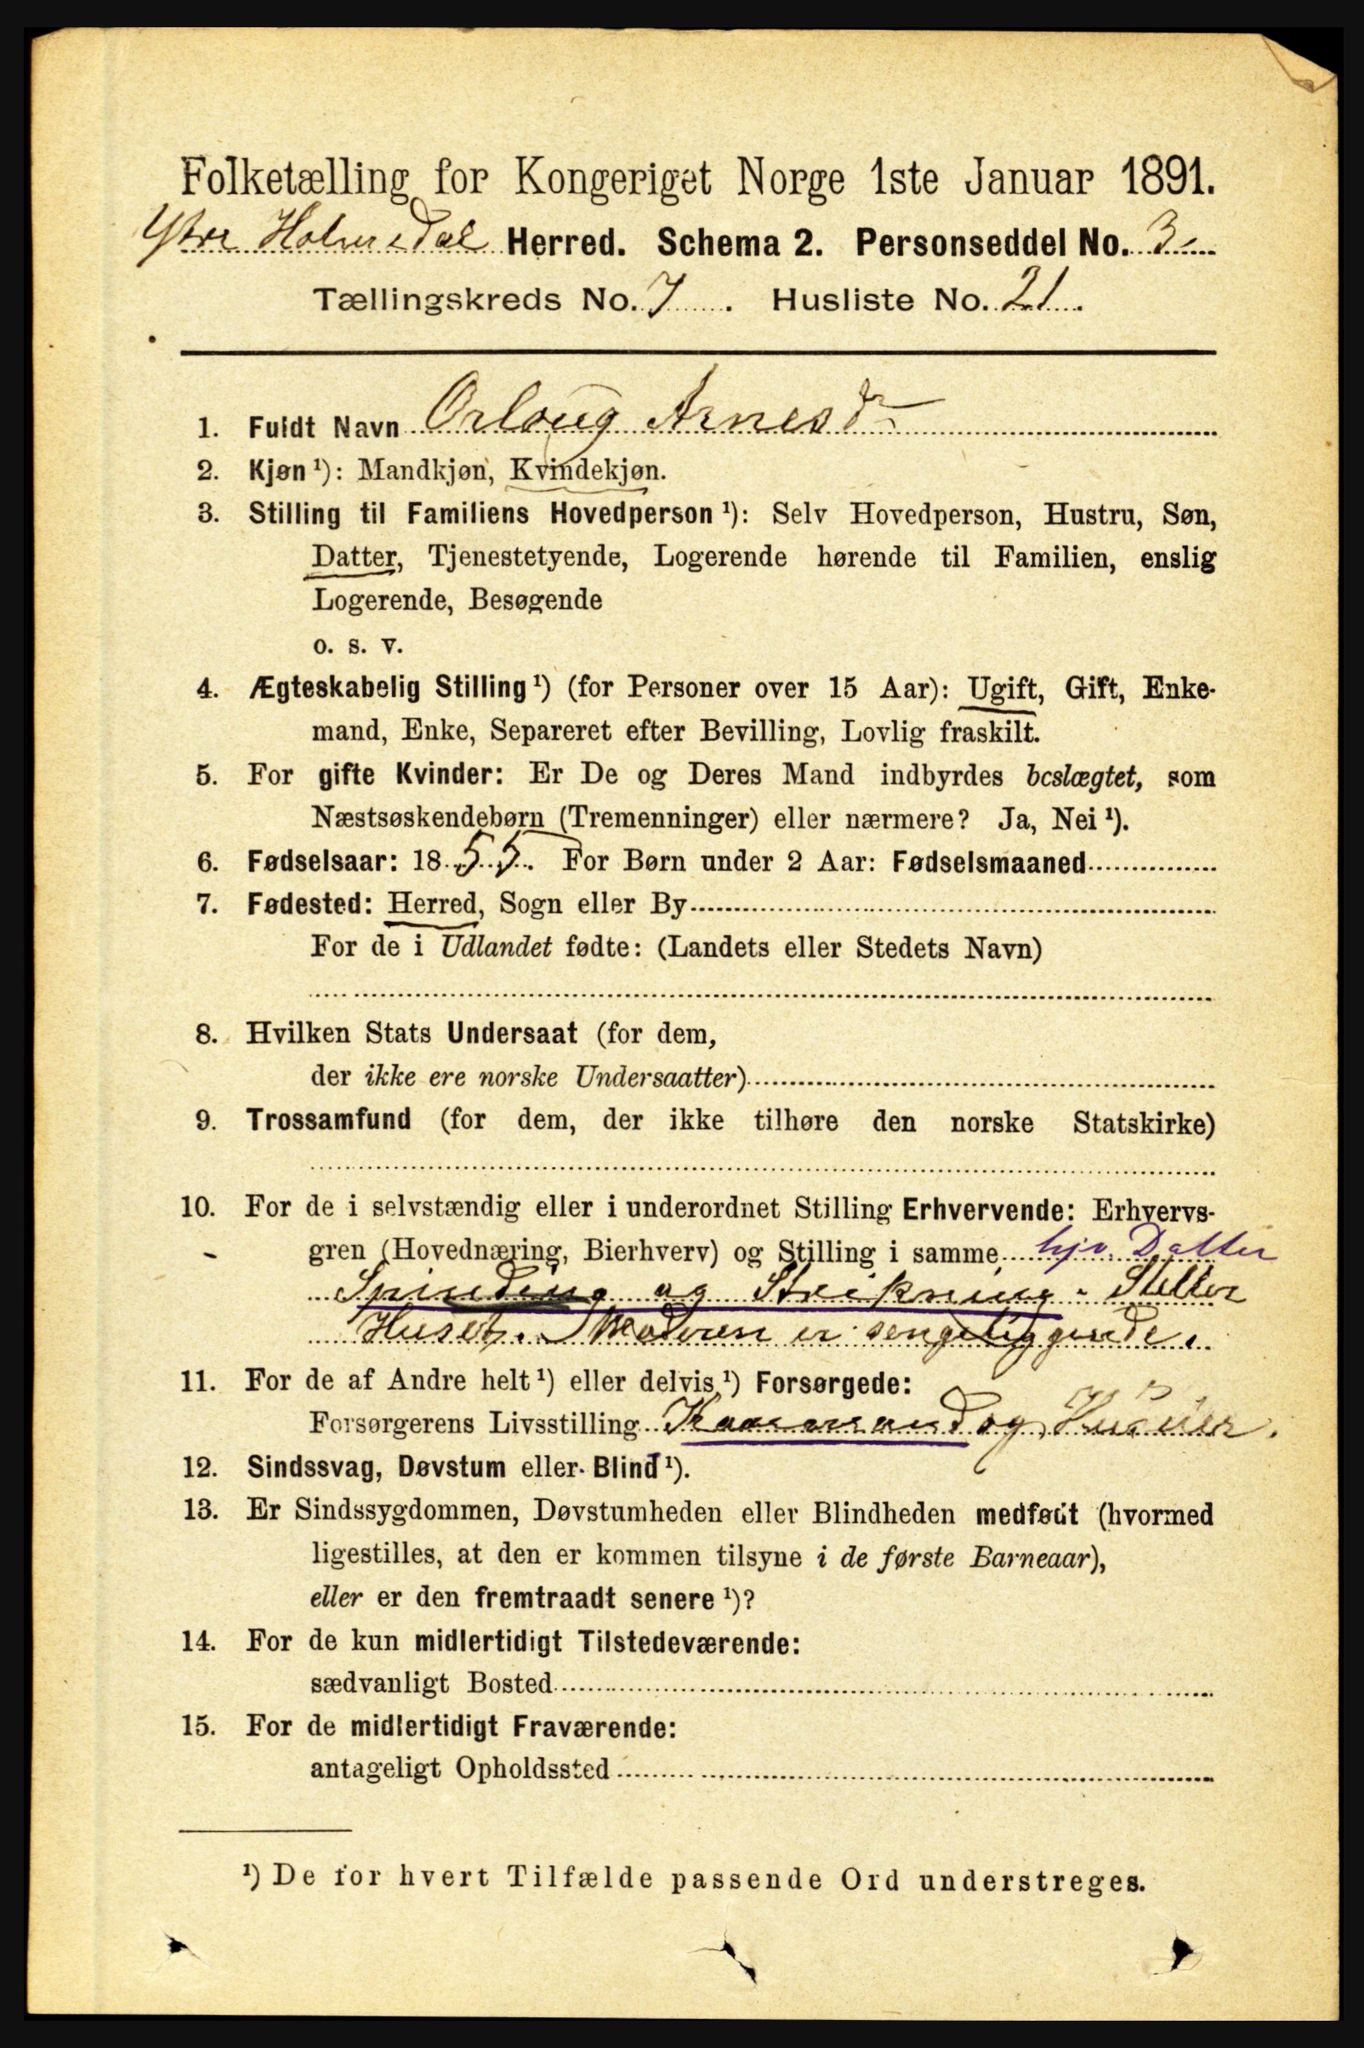 Folketælling for Kongeriget Norge 1ste Januar 1891.
Ytre Holmedal Herred. Schema 2. Personseddel No. 3
Tællingskreds No. 7. Husliste No. 21.
1. Fuldt Navn Orloug Arnesdr
2. Kjøn ¹): Mandkjøn, Kvindekjøn.
3. Stilling til Familiens Hovedperson ¹): Selv Hovedperson, Hustru, Søn,
Datter, Tjenestetyende, Logerende hørende til Familien, enslig
Logerende, Besøgende
o. s. v.
4. Ægteskabelig Stilling ¹) (for Personer over 15 Aar): Ugift, Gift, Enke-
mand, Enke, Separeret efter Bevilling, Lovlig fraskilt.
5. For gifte Kvinder: Er De og Deres Mand indbyrdes beslægtet, som
Næstsøskendebørn (Tremenninger) eller nærmere? Ja, Nei ¹).
6. Fødselsaar: 1855. For Børn under 2 Aar: Fødselsmaaned
7. Fødested: Herred, Sogn eller By
For de i Udlandet fødte: (Landets eller Stedets Navn)
8. Hvilken Stats Undersaat (for dem,
der ikke ere norske Undersaatter)
9. Trossamfund (for dem, der ikke tilhøre den norske Statskirke)
10. For de i selvstændig eller i underordnet Stilling Erhvervende: Erhvervs-
gren (Hovednæring, Bierhverv) og Stilling i samme hjv. Datter
Spinding og Strikning - Steller
Huset. Moderen er sengeliggende.
11. For de af Andre helt ¹) eller delvis ¹) Forsørgede:
Forsørgerens Livsstilling og
12. Sindssvag, Døvstum eller Blind ¹).
13. Er Sindssygdommen, Døvstumheden eller Blindheden medfødt (hvormed
ligestilles, at den er kommen tilsyne i de første Barneaar),
eller er den fremtraadt senere ¹)?
14. For de kun midlertidigt Tilstedeværende:
sædvanligt Bosted
15. For de midlertidigt Fraværende:
antageligt Opholdssted
¹) De for hvert Tilfælde passende Ord understreges.